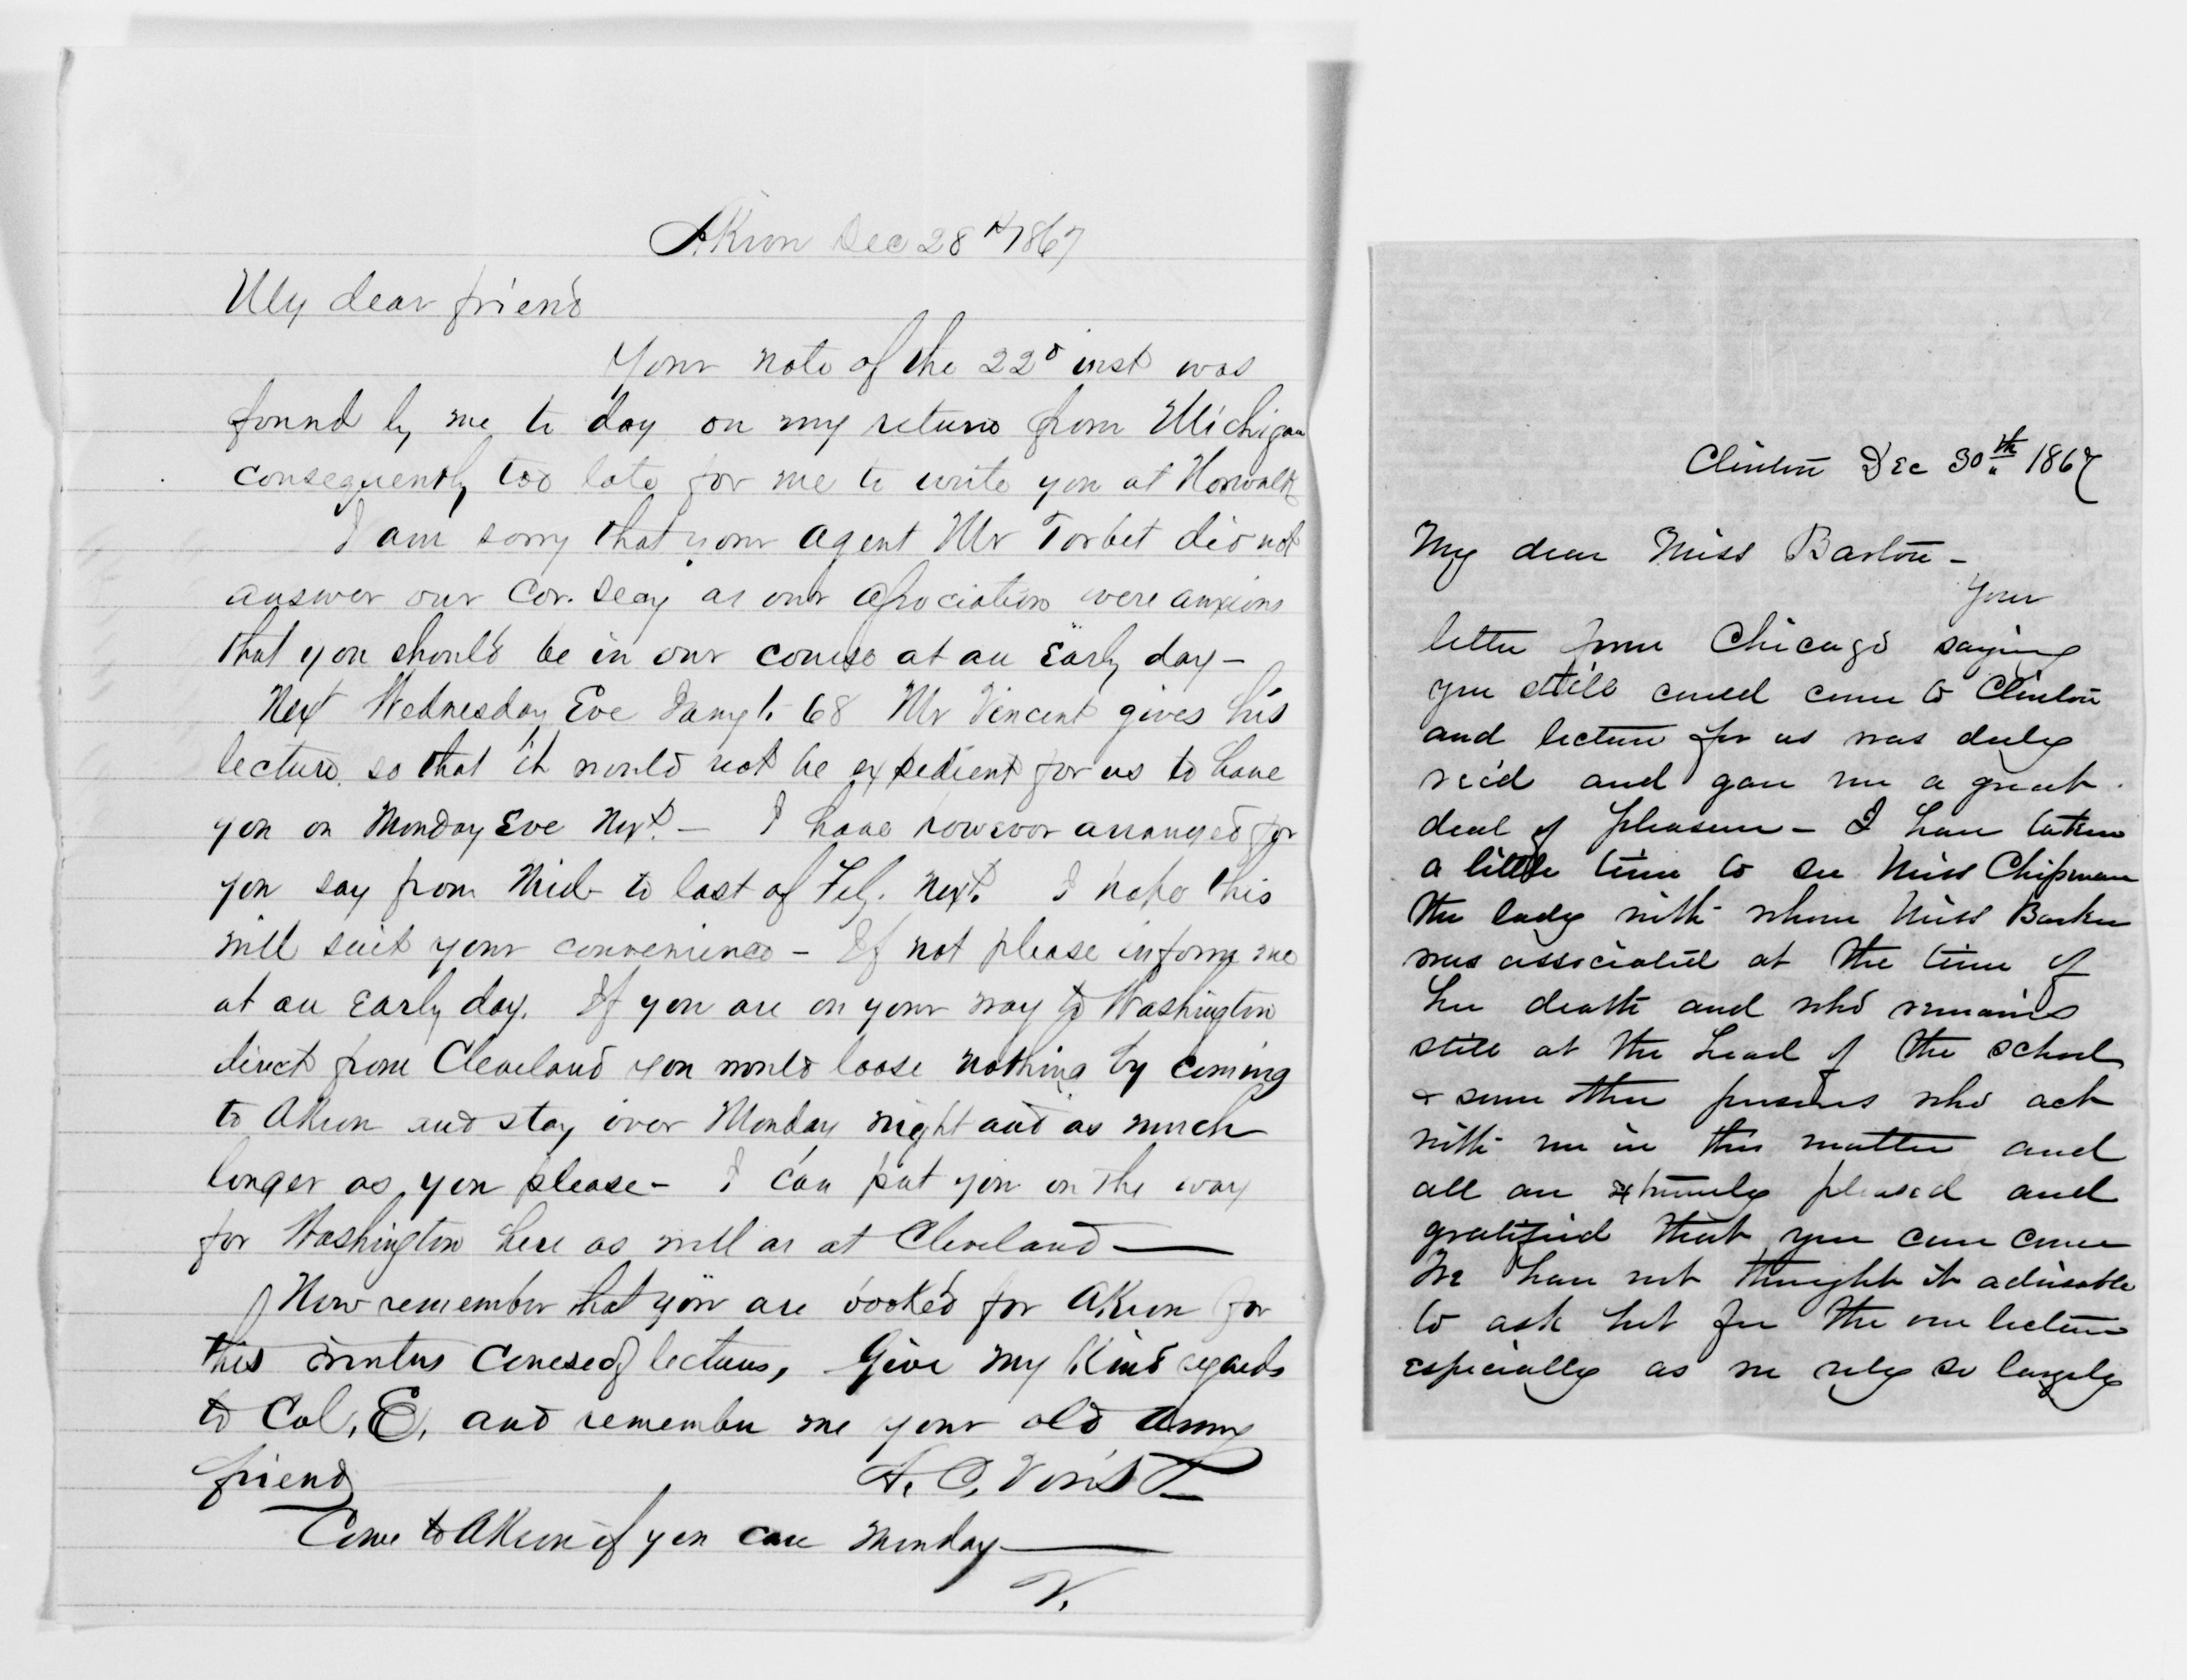 Akron Dec 28th 1867
My dear friend
Your note of the 22d inst was
found by me to day on my return from Michigan
consequently too late for me to write you at Norwalk
I am sorry that your agent Mr Torbet did not
answer our Cor. Secy as our association were anxious
that you should be in our course at an Early day—
Next Wednesday Eve Jany 1. 68 Mr Vincent gives his
lecture, so that it would not be expedient for us to have
you on Monday Eve Next.— I have however arranged for
you say from Mid to last of Feb. next. I hope this
will suit your convenience — If not please inform me
at an Early day. If you are on your way to Washington
direct from Cleveland you would loose nothing by coming
to Akron and stay over Monday night and as much
longer as you please— I can put you on the way
for Washington here as well as at Cleveland—
Now remember that you are booked for Akron for
this winters course of lectures, Give my Kind regards
to Col. E. and remember me your old army
friend
A. C. Voris
Come to Akron if you can Monday—
V.
Clinton Dec 30th 1867
My dear Miss Barton—
Your
letter from Chicago saying
you still could come to Clinton
and lecture for us was duly
rec'd and gave me a great
deal of pleasure— I have taken
a little time to see Miss Chipman
the lady with whom Miss Barker
was associated at the time of
her death and who remains
still at the head of the school
& some other persons who act
with me in this matter and
all are extremely pleased and
gratified that you can come
We have not thought it advisable
to ask but for the one lecture
especially as we rely so largely